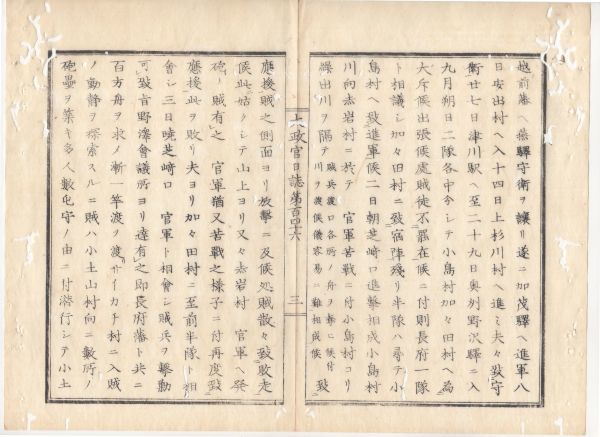 越前藩ヘ蒸驛守衛ヲ讓リ遂ニ加茂驛ヘ進軍八
日安出村ヘ入十四日上杉川村ヘ進ミ夫々致守
衛廿七日津川駅ヘ至二十九日奥州野沢驛ニ入
九月朔日二隊各中分シテ小島村加々田村ヘ為
大斥候出張候處賊徒不罷在候ニ付則長府一隊
ト相議シ加々田村ニ致宿陣残リ半隊ハ尋テ小
島村ヘ致進軍候二日朝芝崎口進撃相成小島村
川向赤岩村ニ於テ 官軍苦戰ニ付小島村ヨリ
繰出川ヲ隔テ賊兵渡口各所ノ舟ヲ 候ニ付川ヲ渡候儀容易ニ難相成候致
太政官日誌第百四十六
三
應援賊之側面ヨリ放撃ニ及候処賊散々致敗走
候此姑クシテ山上ヨリ又々赤岩村 官軍ヘ発
砲賊有之 官軍猶又苦戰之様子ニ付再度致
應援此ヲ敗リ夫ヨリ加々田村ニ至前半隊ト相
會シ三日暁芝崎口 官軍ト相會シ賊兵ヲ撃動
可致旨野澤會議所ヨリ達有之即長府藩ト共ニ
百方舟ヲ求メ漸一竿渡ヲ渡サイカチ村ニ入賊
ノ動静ヲ探索スルニ賊ハ小土山村向ニ數所ノ
砲壘ヲ築キ多人數屯守ノ由ニ付潜行シテ小土